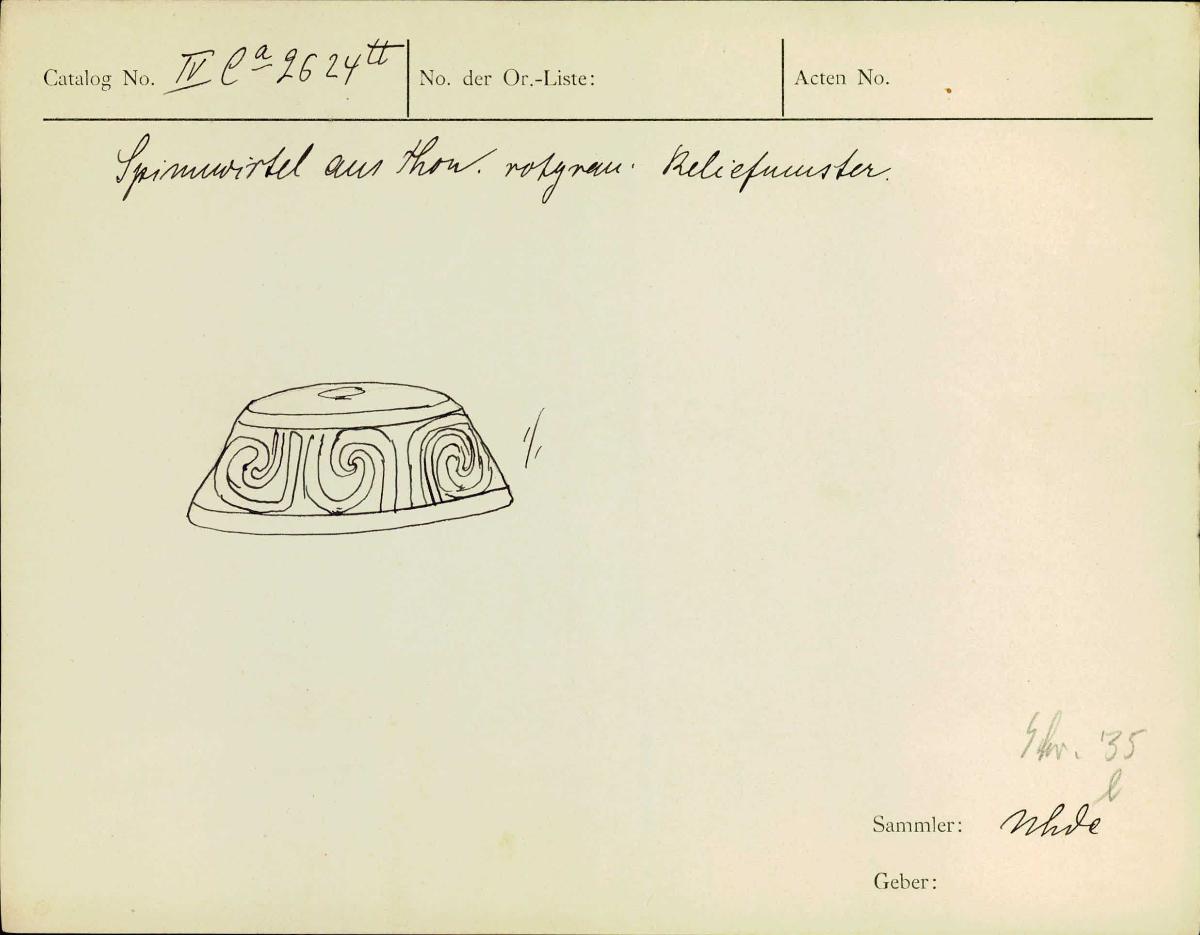 Catalog No. IV Ca 2624tt No. der Or.-Liste: Acten No.
Spinnwirtel aus Thon. rotgrau. Reliefmuster.
1/1
Schr. '35
l
Sammler: Uhde
Geber: